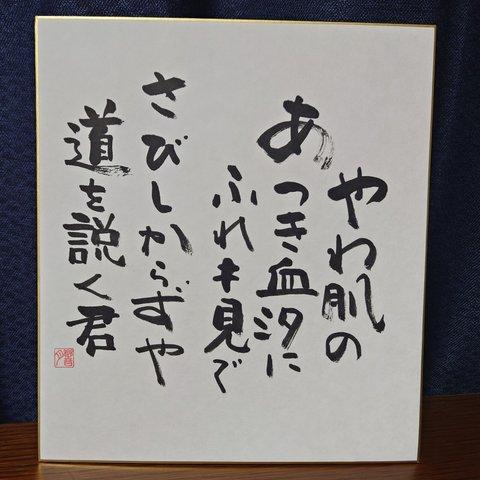 やわ肌の
あつき血汐に
ふれキ見で
さびしからずや
道を説く君